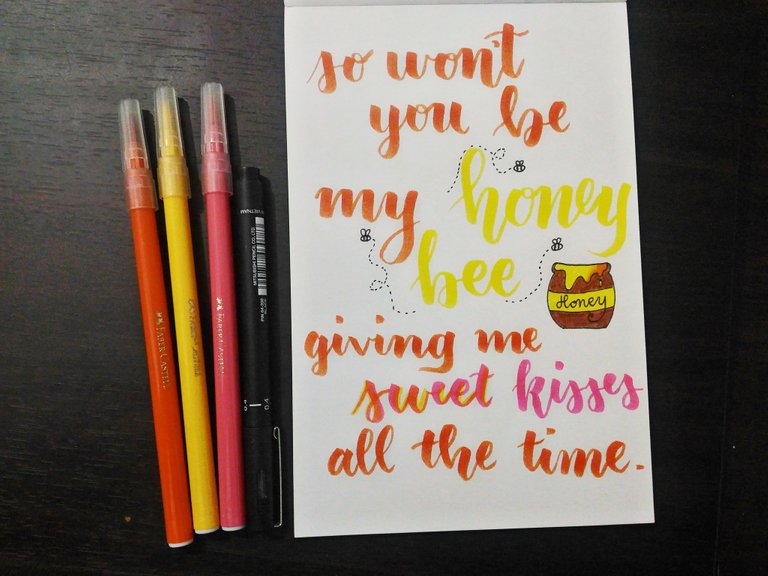 so won't
you be
my honey
bee
Honey
giving me
sweet kisses
all the time.
FABER-CASTELL
FABER-CASTELL
MITSUBISHI PENCIL CO., LTD
0.4
0.4